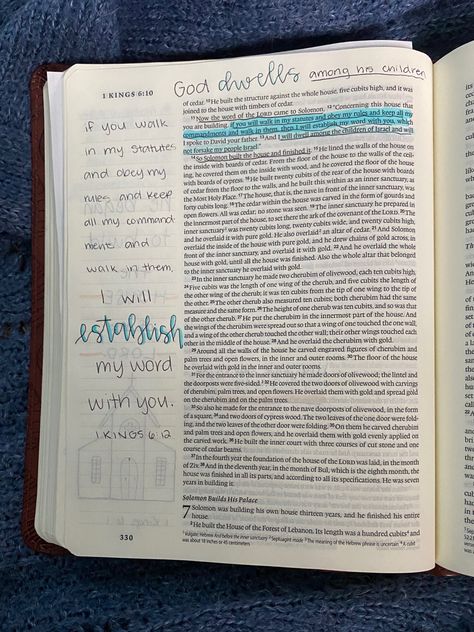 God dwells among his children
1 KINGS 6:10
of cedar. 10 He built the structure against the whole house, five cubits high, and it was
joined to the house with timbers of cedar.
11 Now the word of the LORD came to Solomon, 12 "Concerning this house that
you are building, if you will walk in my statutes and obey my rules and keep all my
commandments and walk in them, then I will establish my word with you, which
I spoke to David your father. 13 And I will dwell among the children of Israel and will
not forsake my people Israel."
14 So Solomon built the house and finished it. 15 He lined the walls of the house on
the inside with boards of cedar. From the floor of the house to the walls of the ceil-
ing, he covered them on the inside with wood, and he covered the floor of the house
with boards of cypress. 16 He built twenty cubits of the rear of the house with boards
of cedar from the floor to the walls, and he built this within as an inner sanctuary, as
the Most Holy Place. 17 The house, that is, the nave in front of the inner sanctuary, was
forty cubits long. 18 The cedar within the house was carved in the form of gourds and
open flowers. All was cedar; no stone was seen. 19 The inner sanctuary he prepared in
the innermost part of the house, to set there the ark of the covenant of the LORD. 20 The
inner sanctuary was twenty cubits long, twenty cubits wide, and twenty cubits high,
and he overlaid it with pure gold. He also overlaid an altar of cedar. 21 And Solomon
overlaid the inside of the house with pure gold, and he drew chains of gold across, in
front of the inner sanctuary, and overlaid it with gold. 22 And he overlaid the whole
house with gold, until all the house was finished. Also the whole altar that belonged
to the inner sanctuary he overlaid with gold.
23 In the inner sanctuary he made two cherubim of olivewood, each ten cubits high.
24 Five cubits was the length of one wing of the cherub, and five cubits the length of
the other wing of the cherub; it was ten cubits from the tip of one wing to the tip of
the other. 25 The other cherub also measured ten cubits; both cherubim had the same
measure and the same form. 26 The height of one cherub was ten cubits, and so was that
of the other cherub. 27 He put the cherubim in the innermost part of the house. And
the wings of the cherubim were spread out so that a wing of one touched the one wall,
and a wing of the other cherub touched the other wall; their other wings touched each
other in the middle of the house. 28 And he overlaid the cherubim with gold.
29 Around all the walls of the house he carved engraved figures of cherubim and
palm trees and open flowers, in the inner and outer rooms. 30 The floor of the house
he overlaid with gold in the inner and outer rooms.
31 For the entrance to the inner sanctuary he made doors of olivewood; the lintel and
the doorposts were five-sided. 32 He covered the two doors of olivewood with carvings
of cherubim, palm trees, and open flowers. He overlaid them with gold and spread gold
on the cherubim and on the palm trees.
33 So also he made for the entrance to the nave doorposts of olivewood, in the form of
a square, 34 and two doors of cypress wood. The two leaves of the one door were fold-
ing, and the two leaves of the other door were folding. 35 On them he carved cherubim
and palm trees and open flowers, and he overlaid them with gold evenly applied on
the carved work. 36 He built the inner court with three courses of cut stone and one
course of cedar beams.
37 In the fourth year the foundation of the house of the LORD was laid, in the month
of Ziv. 38 And in the eleventh year, in the month of Bul, which is the eighth month, the
house was finished in all its parts, and according to all its specifications. He was seven
years in building it.
Solomon Builds His Palace
7 Solomon was building his own house thirteen years, and he finished his entire
house.
2 He built the House of the Forest of Lebanon. Its length was a hundred cubits and
if you walk
in my statutes
and obey my
rules and keep
all my command
ments and
walk in them,
I will
establish
my word
with you.
1 KINGS 6:12
330